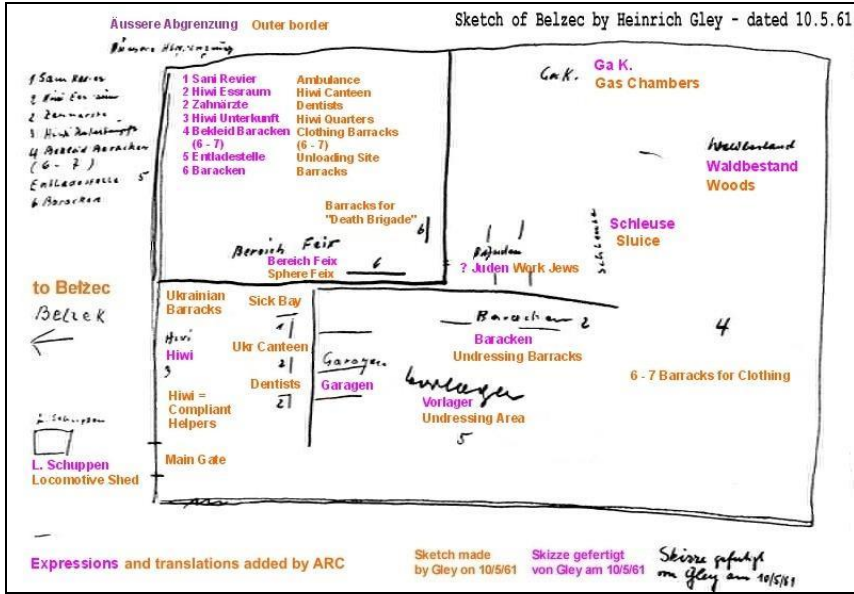 Äussere Abgrenzung Outer border
Sketch of Belzec by Heinrich Gley - dated 10.5.61
Äussere Abgrenzung
1 Sani Revier
2 Hiwi Essraum
2 Zahnärzte
3 Hiwi Unterkunft
4 Bekleid Baracken
(6 - 7)
Entladestelle 5
6 Baracken
1 Sani Revier Ambulance
2 Hiwi Essraum Hiwi Canteen
2 Zahnärzte Dentists
3 Hiwi Unterkunft Hiwi Quarters
4 Bekleid Baracken Clothing Barracks
(6 - 7) (6 - 7)
5 Entladestelle Unloading Site
6 Baracken Barracks
Ga K.
Ga K.
Gas Chambers
Waldbestand
Waldbestand
Woods
Barracks for
"Death Brigade"
6
Schleuse
Schleuse
Sluice
Bereich Feix
Bereich Feix
Sphere Feix
6
? Juden Work Jews
to Bełzec
Belzek
Ukrainian
Barracks
Sick Bay
1
Hiwi
Hiwi
3
Ukr Canteen
2
Dentists
2
Hiwi =
Compliant
Helpers
Garagen
Garagen
Baracken 2
Baracken
Undressing Barracks
4
6 - 7 Barracks for Clothing
Vorlager
Vorlager
Undressing Area
5
L. Schuppen
L. Schuppen
Locomotive Shed
Main Gate
Expressions and translations added by ARC
Sketch made
by Gley on 10/5/61
Skizze gefertigt
von Gley am 10/5/61
Skizze gefertigt
von Gley am 10/5/61